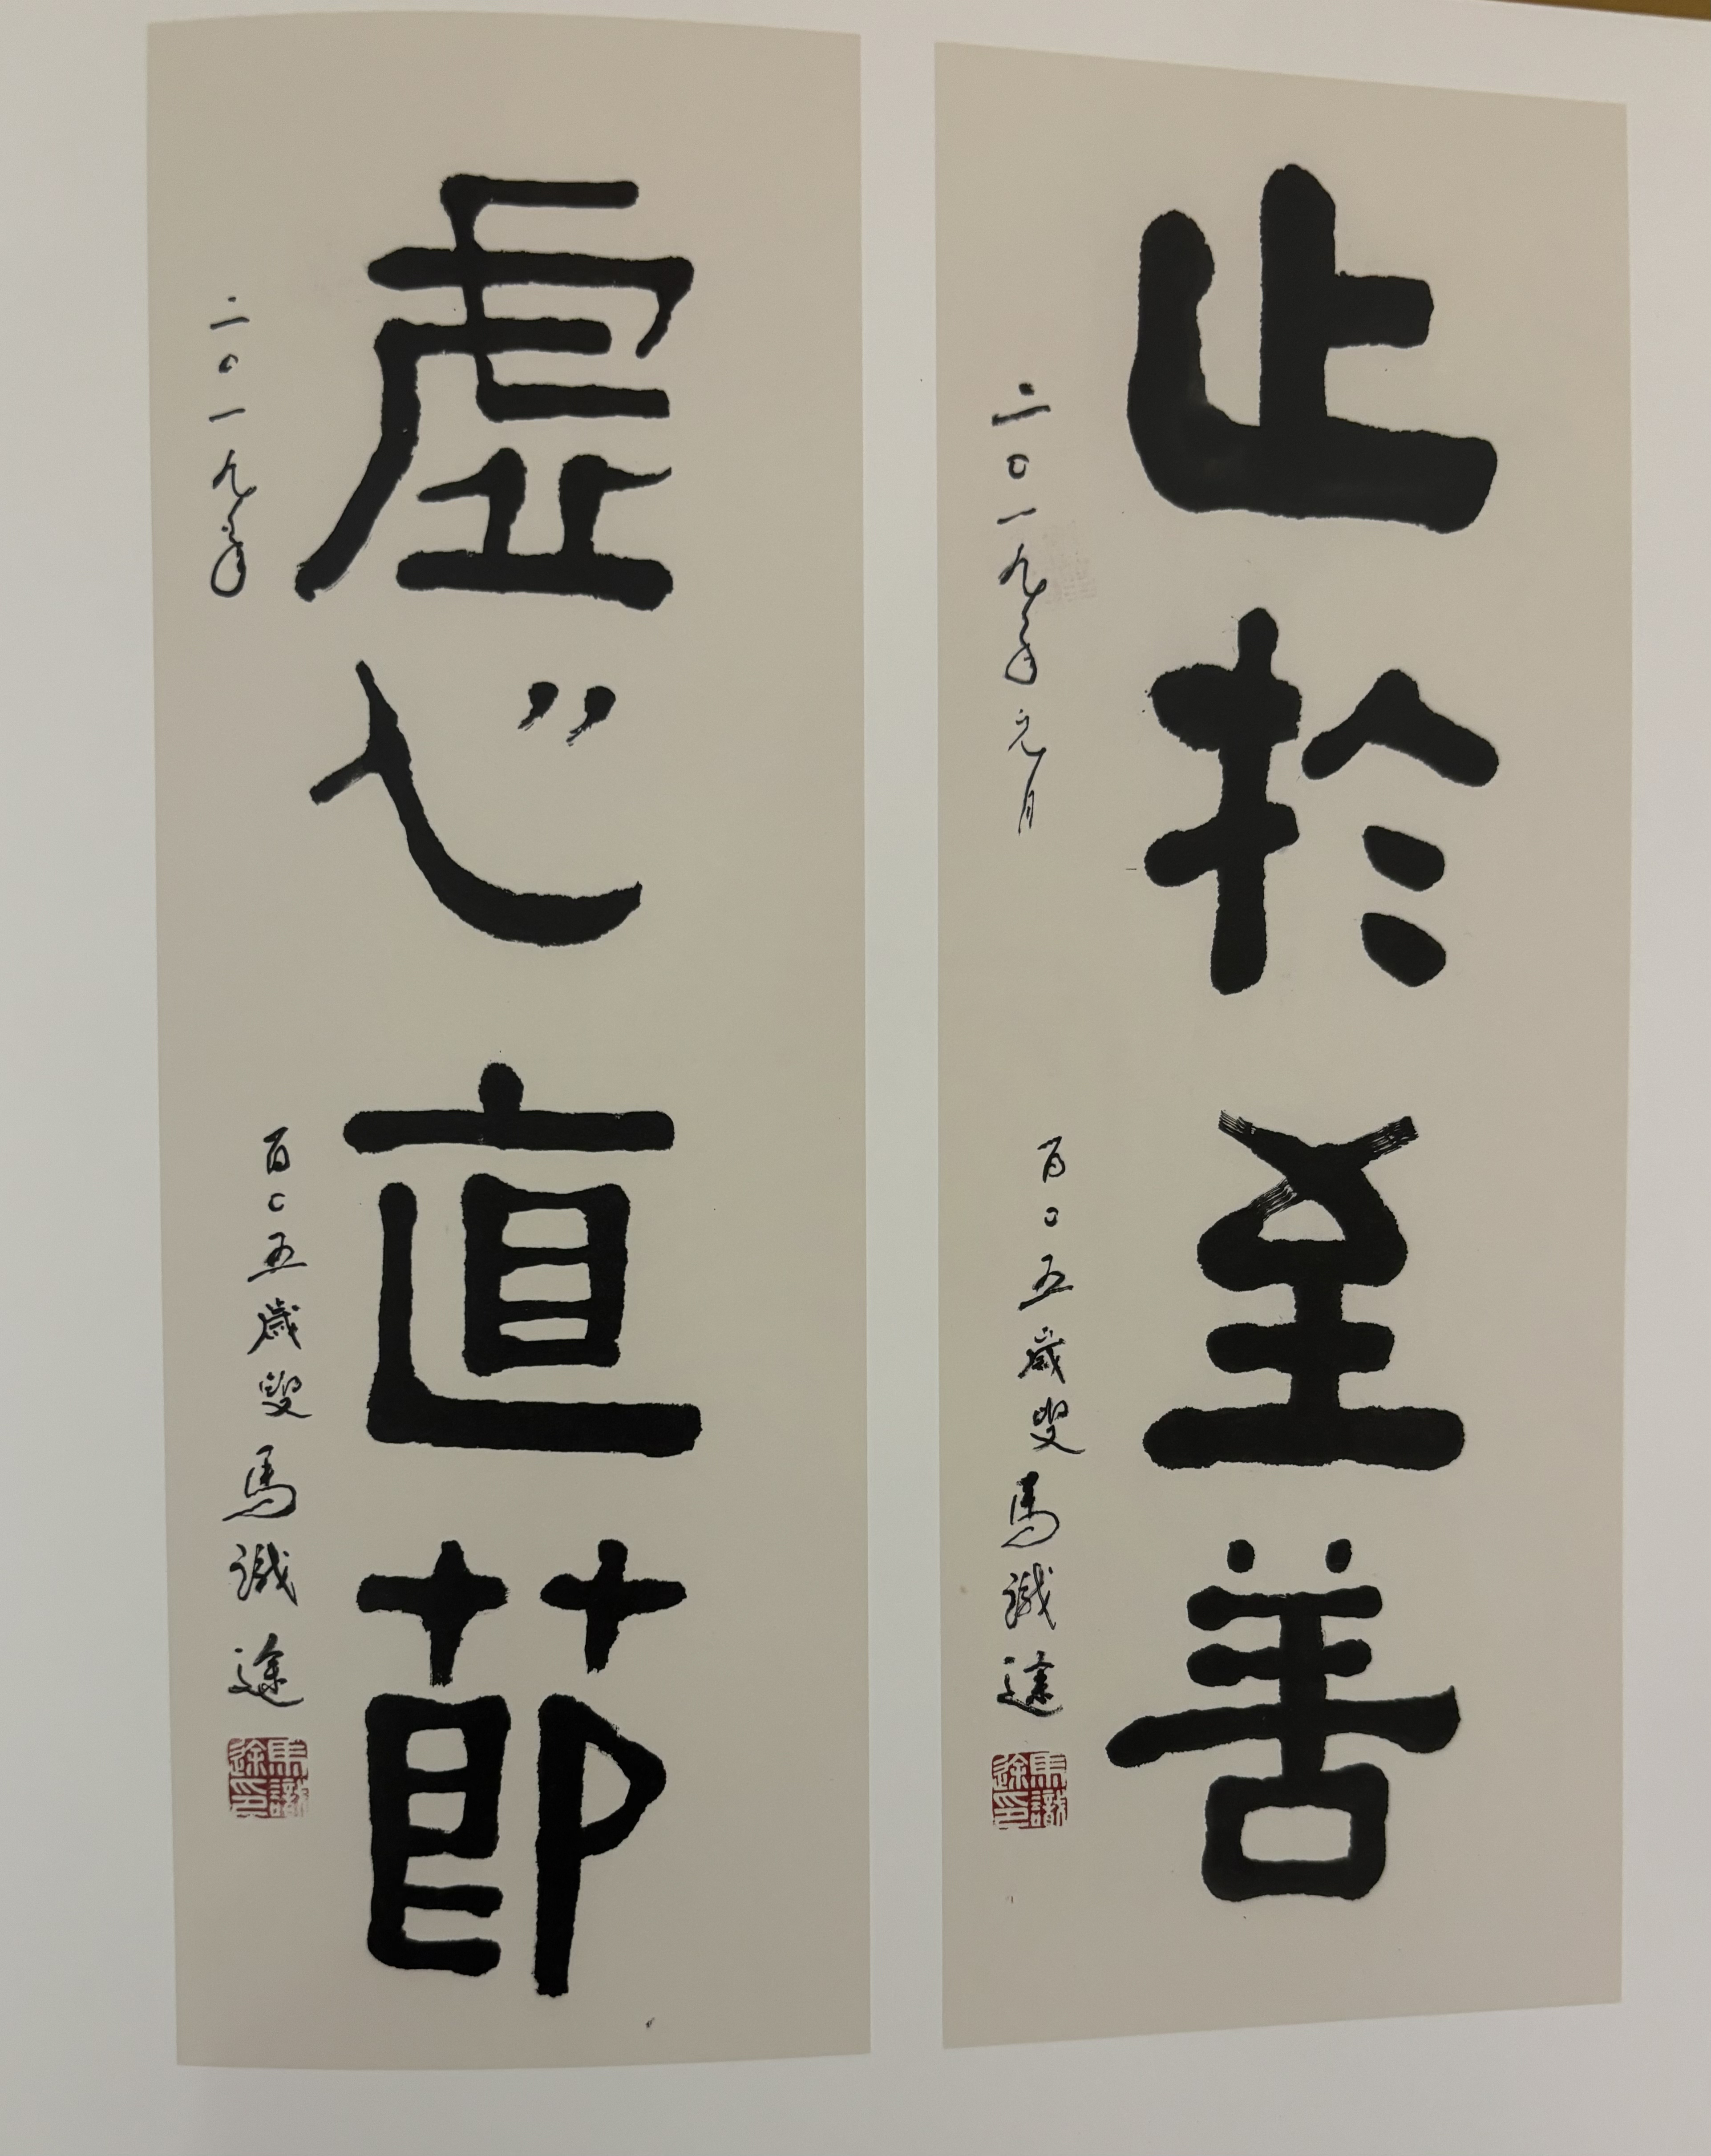 止於至善
二〇一九年元月
百〇五歲叟馬識途
馬識途印
虛心直節
二〇一九年
百〇五歲叟馬識途
馬識途印